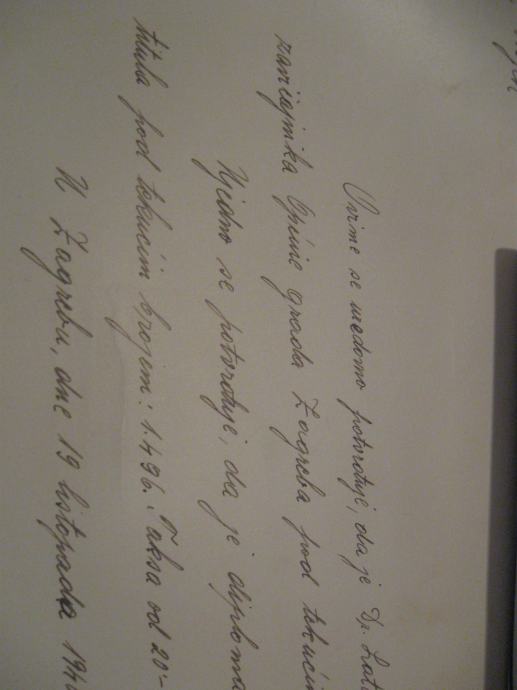 Ovime se uredomo potvrdjuje, da je Dr. Lat
zavičajnika Općine grada Zagreba pod tekućim
Ujedno se potvrdjuje, da je diploma
titula pod tekućim brojem: 1.496. Taksa od 20-
U Zagrebu, dne 19 listopada 194